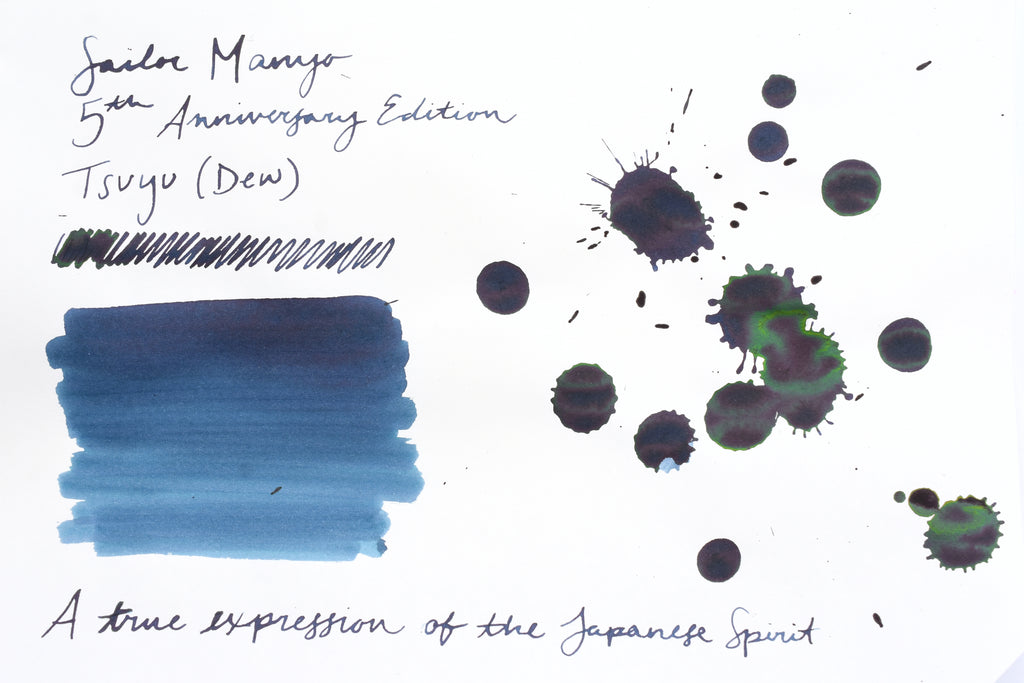 Sailor Manyo
5th Anniversary Edition
Tsuyu (Dew)
A true expression of the Japanese Spirit